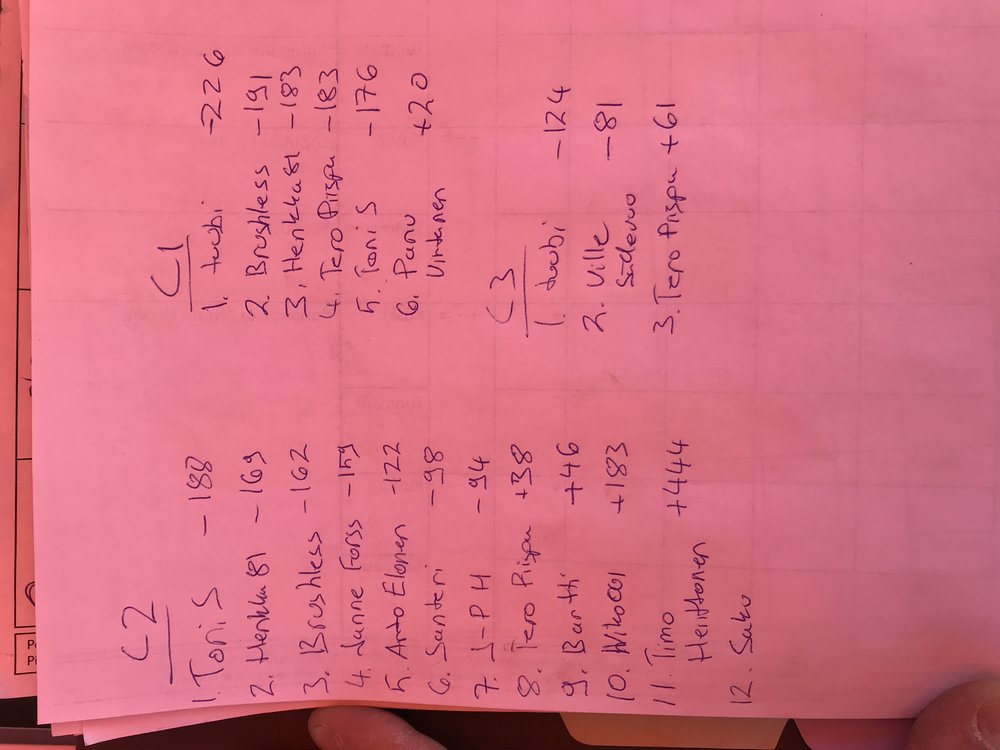 C2
1. Toni S -188
2. Henkka 81 -169
3. Brushless -162
4. Janne Forss -159
5. Arto Elonen -122
6. Santeri -98
7. J-PH -94
8. Tero Piispa +38
9. Bartti +46
10. +183
11. Timo +444
Heittonen
12. Saku
C1
1. tuubi -226
2. Brushless -191
3. Henkka 81 -183
4. Tero Piispa -183
5. Toni S -176
6. Panu +20
Virtanen
C3
1. tuubi -124
2. Ville -81
3. Tero Piispa +61